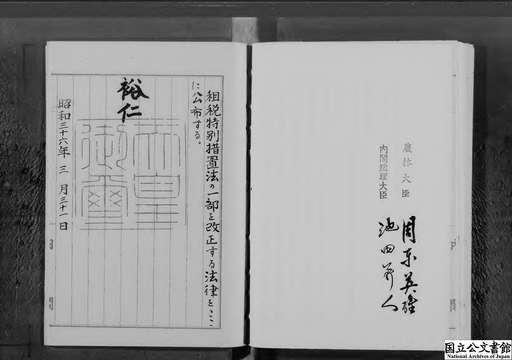 農林大臣
周東英雄
内閣総理大臣
池田勇人
租税特別措置法の一部を改正する法律をここ
に公布する。
裕仁
天皇
御璽
昭和三十六年三月三十一日
国立公文書館
National Archives of Japan